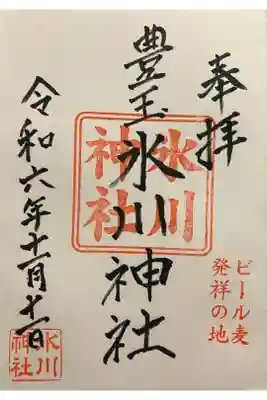 奉拝
ビール麦
発祥の地
豊玉氷川神社
氷川
神社
令和六年十一月十一日
氷川
神社